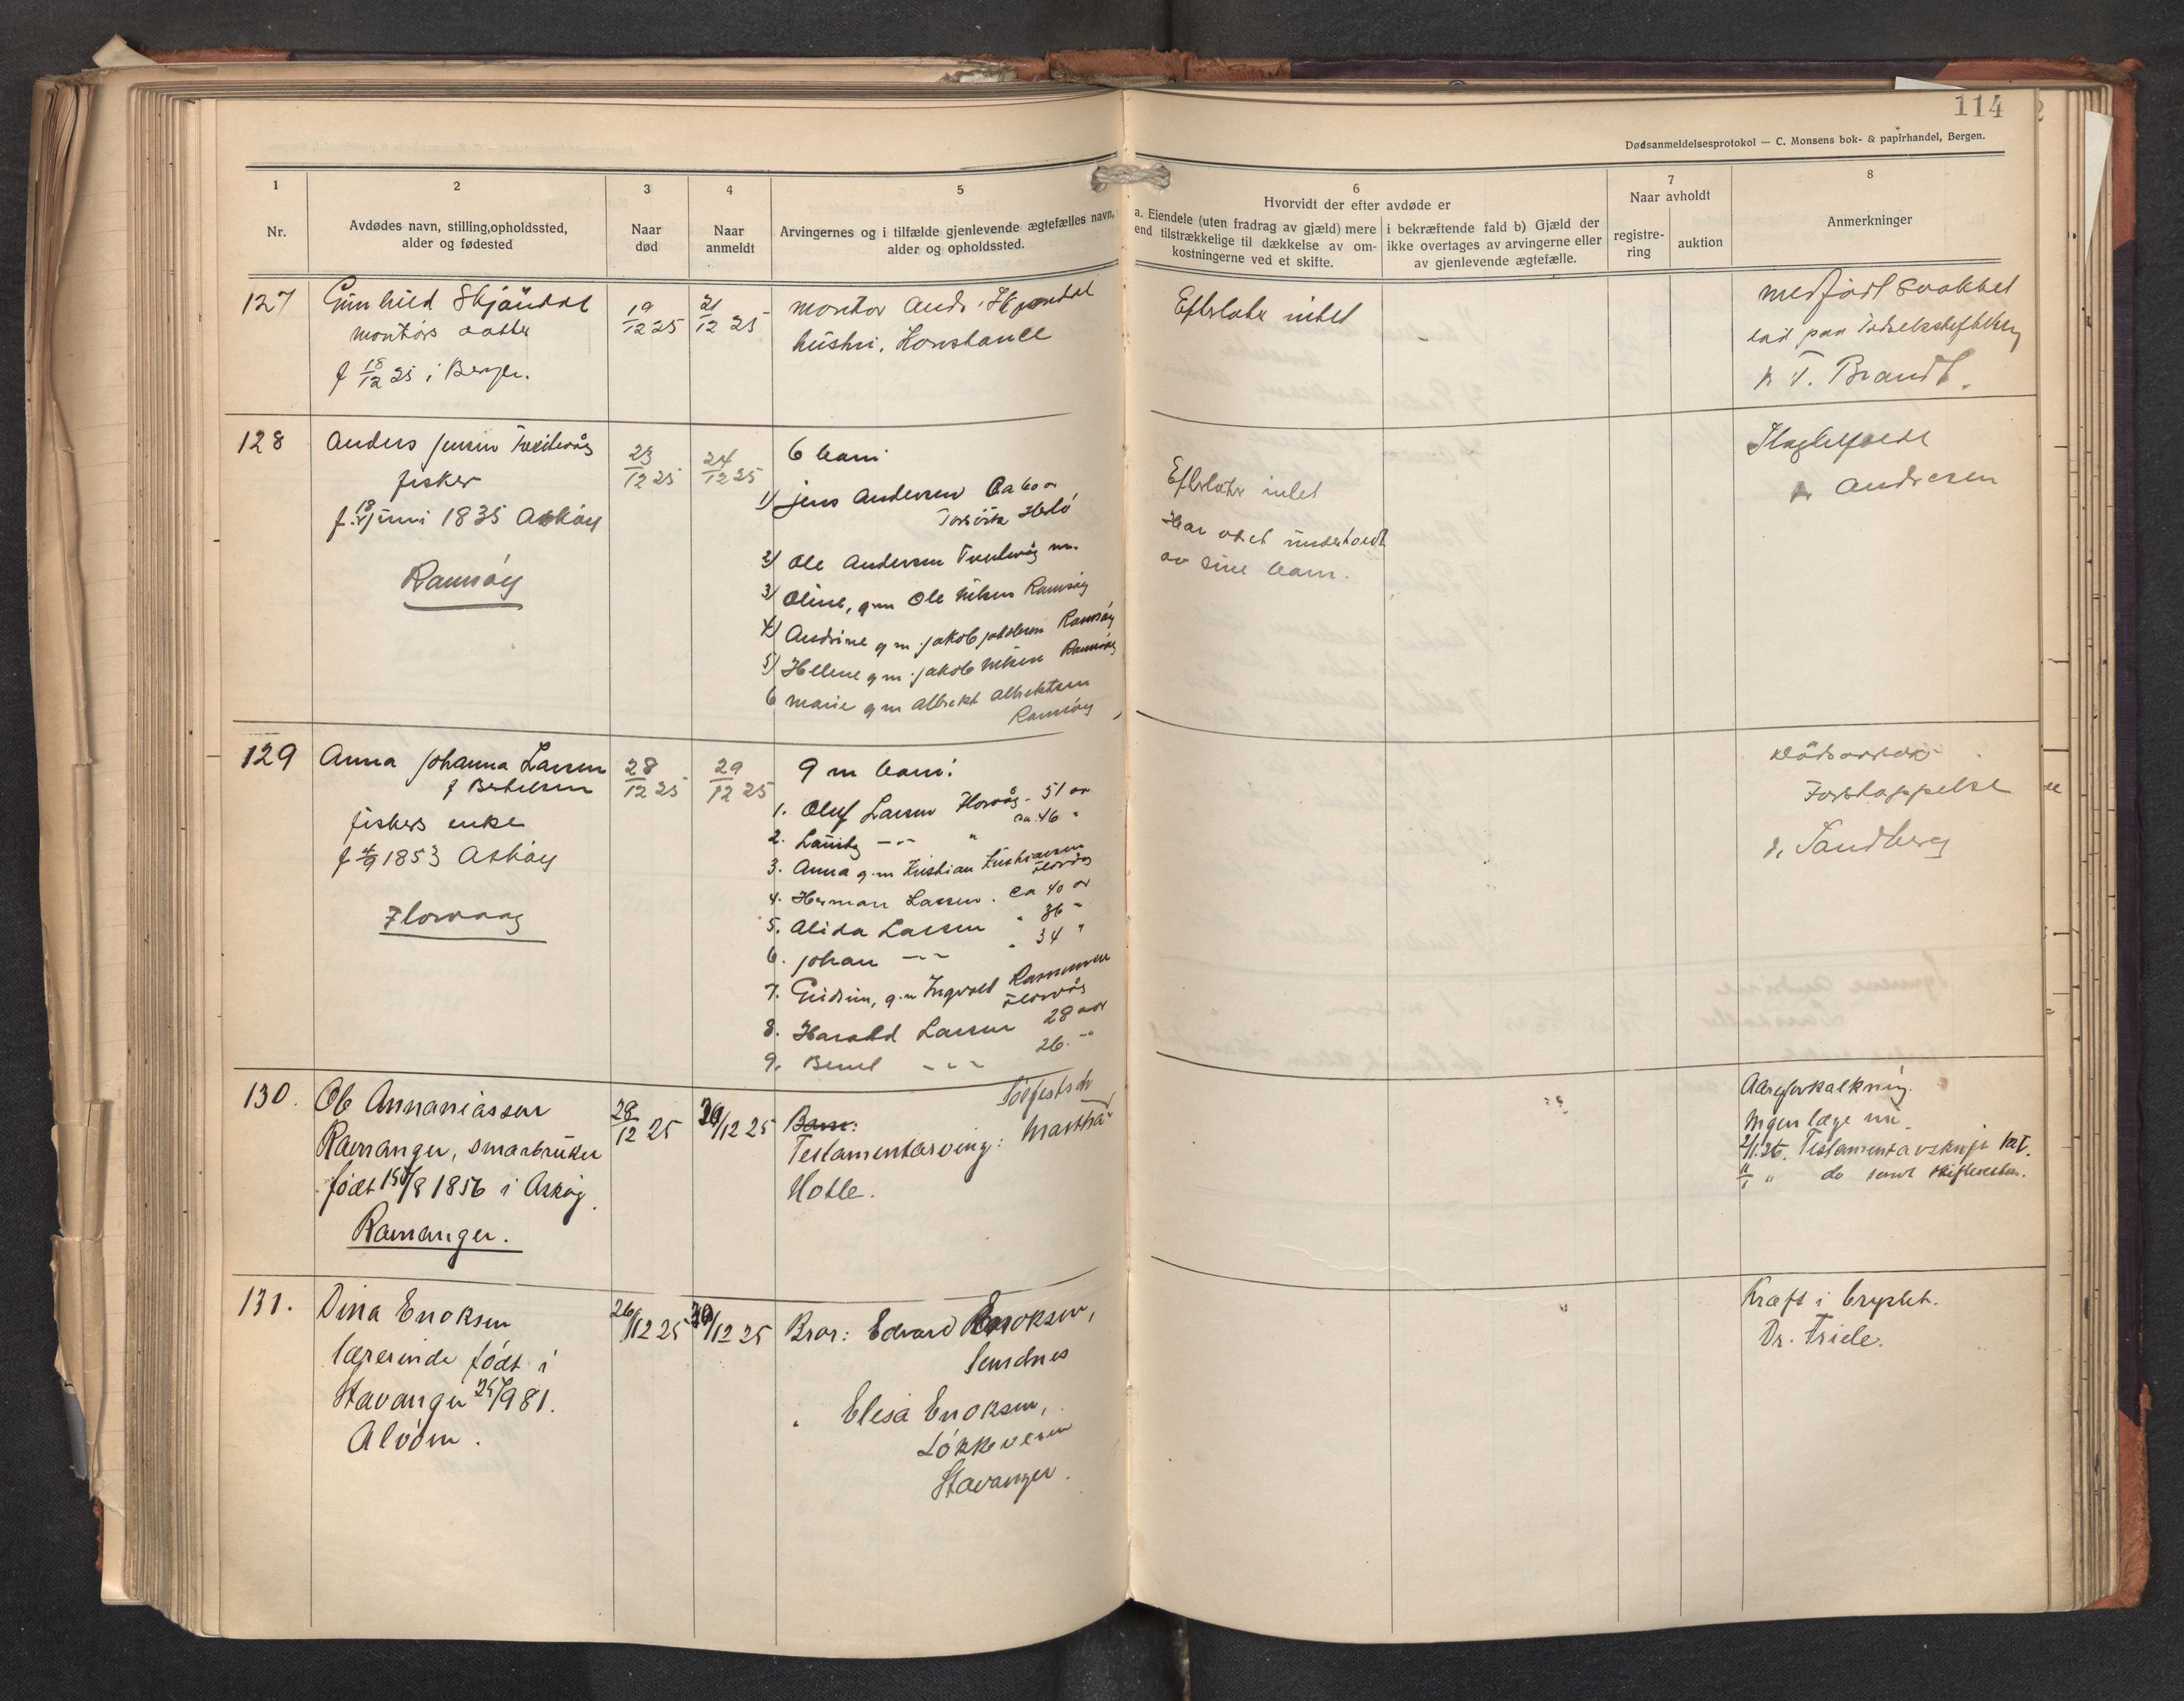 114
Dødsanmeldelsesprotokol — C. Monsens bok- & papirhandel, Bergen.
1
2
3
4
5
6
7
8
Nr.
Avdødes navn, stilling, opholdssted,
alder og fødested
Naar
død
Naar
anmeldt
Arvingernes og i tilfælde gjenlevende ægtefælles navn,
alder og opholdssted.
Hvorvidt der efter avdøde er
a. Eiendele (uten fradrag av gjæld) mere
end tilstrækkelige til dækkelse av om-
kostningerne ved et skifte.
i bekræftende fald b) Gjæld der
ikke overtages av arvingerne eller
av gjenlevende ægtefælle.
Naar avholdt
registre-
ring
auktion
Anmerkninger
127
Gunhild Skjöndal
montørs datter
f 18/12 25 i Bergen.
19/12 25
21/12 25
montør Andr. Skjöndal
hustru, Konstance
Efterlater intet
medfødt svakhet
Brandt.
128
Anders Jensen
fisker
f. 18 juni 1835 Asköy
Ramsöy
23/12 25
24/12 25
6 barn
1) Jens Andersen Ca 60 år
Herlö
2) Ole Andersen
3) Oline, g.m Ole Nilsen Ramsöy
4) Andrine g m Jakob Jakobsen Ramsöy
5) Helene g m Jakob Nilsen Ramsöy
6 Marie g m Albrekt Albrektsen
Ramsöy
Efterlater intet
Har været underholdt
av sine barn.
Andresen
129
Anna Johanna Larsen
f Bertelsen
fiskers enke
f 4/9 1853 Asköy
Florvaag
28/12 25
29/12 25
9 m barn:
1. Oluf Larsen Florvåg - 51 år
ca 46 "
2. Lauritz — " — "
3. Anna g.m Kristian Kristiansen
Florvåg
4. Herman Larsen. Ca 40 år
5. Alida Larsen " 36 "
6. Johan — " — " 34 "
7. Gudrun, g.m Ingvald Rasmussen
Florvåg
8. Harald Larsen 28 aar
9. Bernt — " — 26 — "
Dödsårsak
Forstoppelse
d. Sandberg
130.
Ole Annaniassen
Ramanger, smaabruker
født 15/8 1856 i Asköy.
Ramanger.
28/12 25
30/12 25
Barn:
Testamentarving: Martha
Holle.
Aareforkalkning.
Ingen læge
2/1.26. Testamentavskrift
" do sendt skifteretten.
131.
Dina Enoksen
lærerinde født i
Stavanger 25/9 81.
Alvöen.
26/12 25
30/12 25
Bror: Edvard Enoksen,
Sandnes
" Elisa Enoksen,
Lökkeveien
Stavanger.
Kræft i brystet.
Dr. Friele.